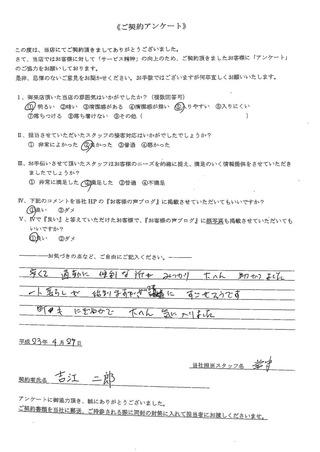 《ご契約アンケート》
この度は、当店にてご契約頂きましてありがとうございました。
さて、当店ではお客様に対して「サービス精神」の向上のため、ご契約頂きましたお客様に「アンケート」
のご協力をお願いしております。
是非、忌憚のないご意見をお聞かせください。お手数ではございますが何卒宜しくお願いいたします。
Ⅰ、御来店頂いた当店の雰囲気はいかがでしたか？（複数回答可）
①明るい ②暗い ③清潔感がある ④清潔感が無い ⑤入りやすい ⑥入りにくい
⑦落ちつける ⑧落ち着けない ⑨その他（ ）
Ⅱ、担当させていただいたスタッフの接客対応はいかがでしたでしょうか？
① 非常によかった ②良かった ③普通 ④悪かった
Ⅲ、お手伝いさせて頂いたスタッフはお客様のニーズを的確に捉え、満足のいく情報提供をさせていただき
ましたでしょうか？
① 非常に満足した ②満足した ③普通 ④不満足
Ⅳ、下記のコメントを当社 HP の『お客様の声ブログ』に掲載させていただいてもいいですか？
①良い ②ダメ
Ⅴ、Ⅳで『良い』と答えていただけたお客様で、『お客様の声ブログ』に顔写真も掲載させていただいても
いいですか？
①良い ②ダメ
お気づきの点など、ご自由にご記入ください。
安くて 通勤に 便利な所が みつかり 大へん 助かりました
一人暮らしで にすごせそうです
にぎやかで 大へん 気に入りました
平成 23年 4月 29日
当社担当スタッフ名
契約者氏名 吉江 二郎
アンケートに御協力頂き、誠にありがとうございました。
ご契約書類を当社に郵送、ご持参される際に同封の封筒に入れて担当者にお渡しくださいませ。